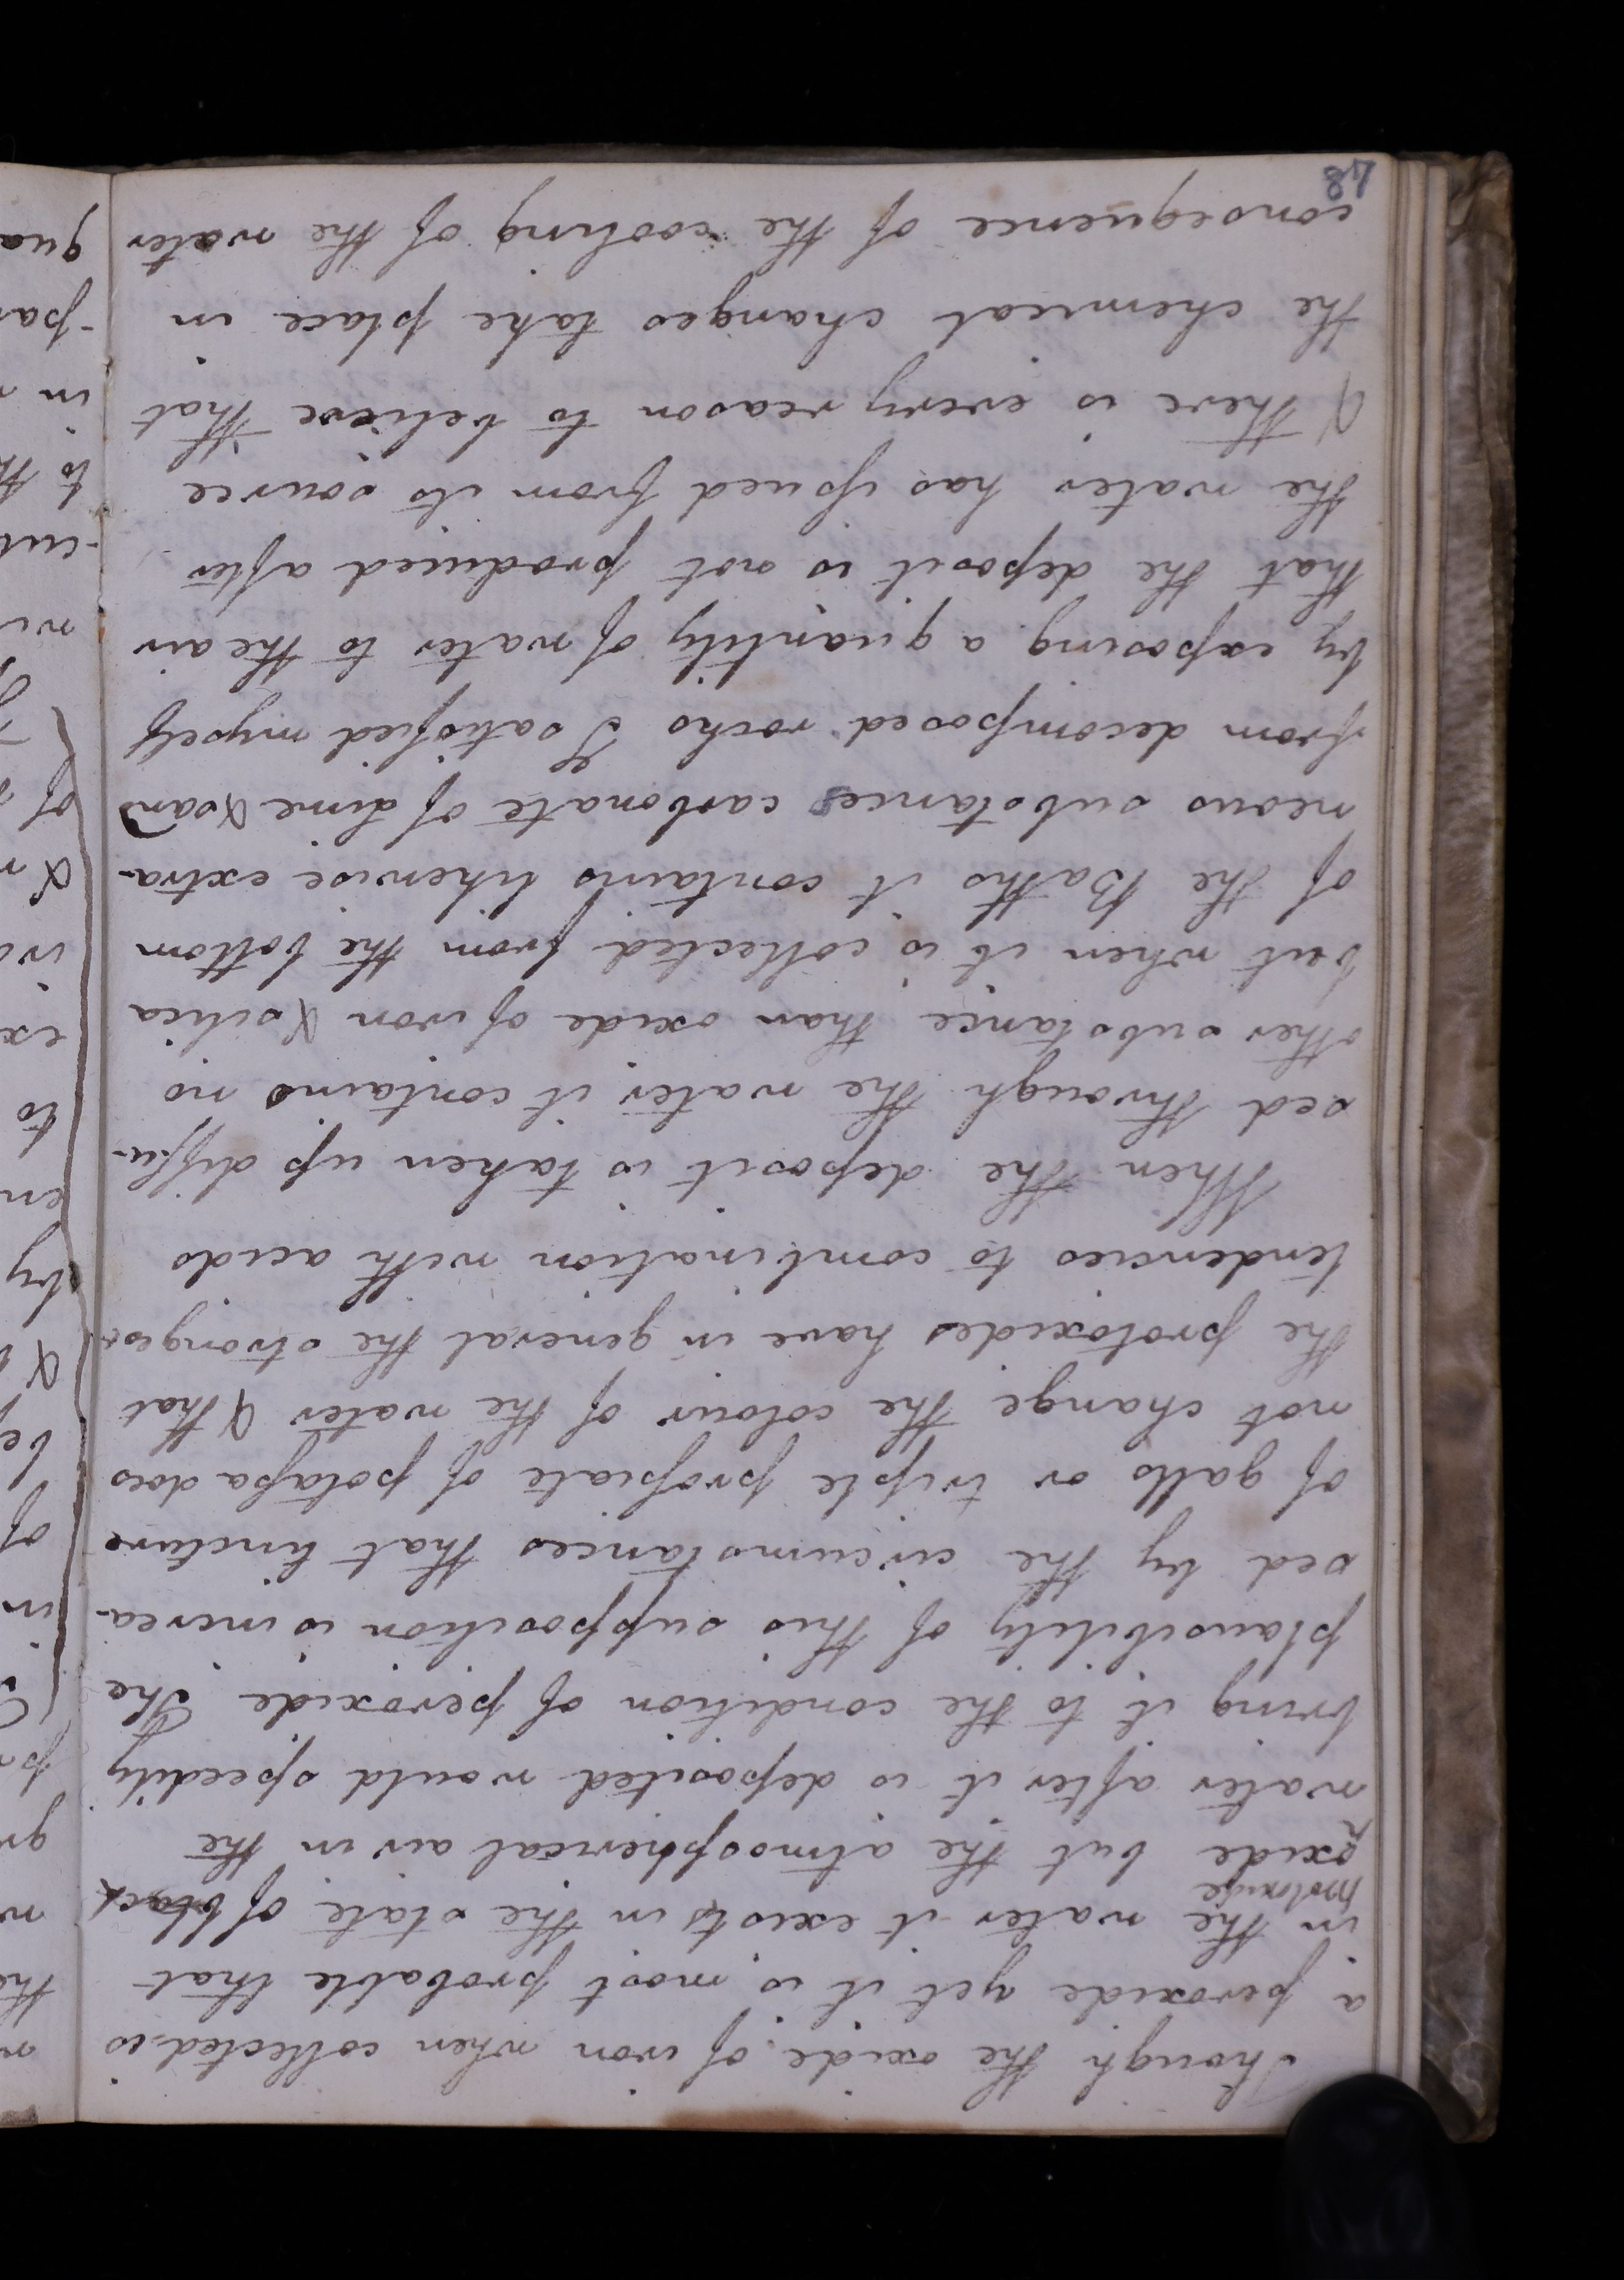 Though the oxide of iron when collected is
a peroxide yet it is most probable that
in the water it exists in the state of black
protoxide
oxide but the atmospherical air in the
water after it is deposited would speedily
bring it to the condition of peroxide The
plausibility of this supposition is increa-
sed by the circumstances that tincture
of galls or triple prossiate of potassa does
not change the colour of the water & that
the protoxides have in general the stronges
tendencies to combination with acids
When the deposit is taken up diffu-
sed through the water it contains no
other substance than oxide of iron & silica
but when it is collected from the bottom
of the Baths it contains likewise extra-
neous substances carbonate of Lime & sand
from decomposed rocks I satisfied myself
by exposing a quantity of water to the air
that the deposit is not produced after
the water has issued from its source
& there is every reason to believe that
the chemical changes take place in
consequence of the cooling of the water
48